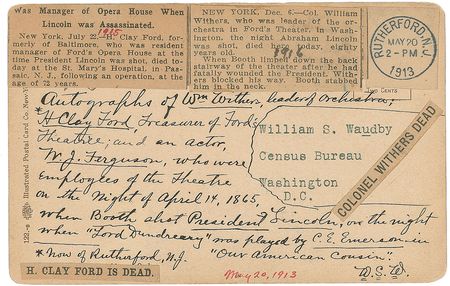 was Manager of Opera House When
Lincoln was Assassinated.
1915
New York, July 22.—H. Clay Ford, formerly of Baltimore, who was resident
manager of Ford's Opera House at the
time President Lincoln was shot, died today at the St. Mary's Hospital, in Passaic, N. J., following an operation, at the
age of 72 years.
NEW YORK, Dec. 6.—Col. William
Withers, who was leader of the orchestra in Ford's Theater, in Washington, the night Abraham Lincoln
was shot, died today, eighty
years old.
1916
When Booth limped down the back
way of the theater after he had
fatally wounded the President, Withers blocked his way. Booth stabbed
him in the neck.
RUTHERFORD, N.J.
MAY 20
2-PM
1913
Two Cents
Autographs of Wm Withers, leader of Orchestra;
*H Clay Ford, Treasurer of Ford's
Theatre; and an actor,
W. J. Ferguson, who were
employees of the Theatre
on the Night of April 14, 1865,
when Booth shot President Lincoln, on the night
when "Lord Dundreary" was played by C. E. Emerson in
*Now of Rutherford, N.J. "Our American Cousin".
W.S.W.
William S. Waudby
Census Bureau
Washington
D.C.
COLONEL WITHERS DEAD
H. CLAY FORD IS DEAD.
May 20, 1913
Illustrated Postal Card Co. New